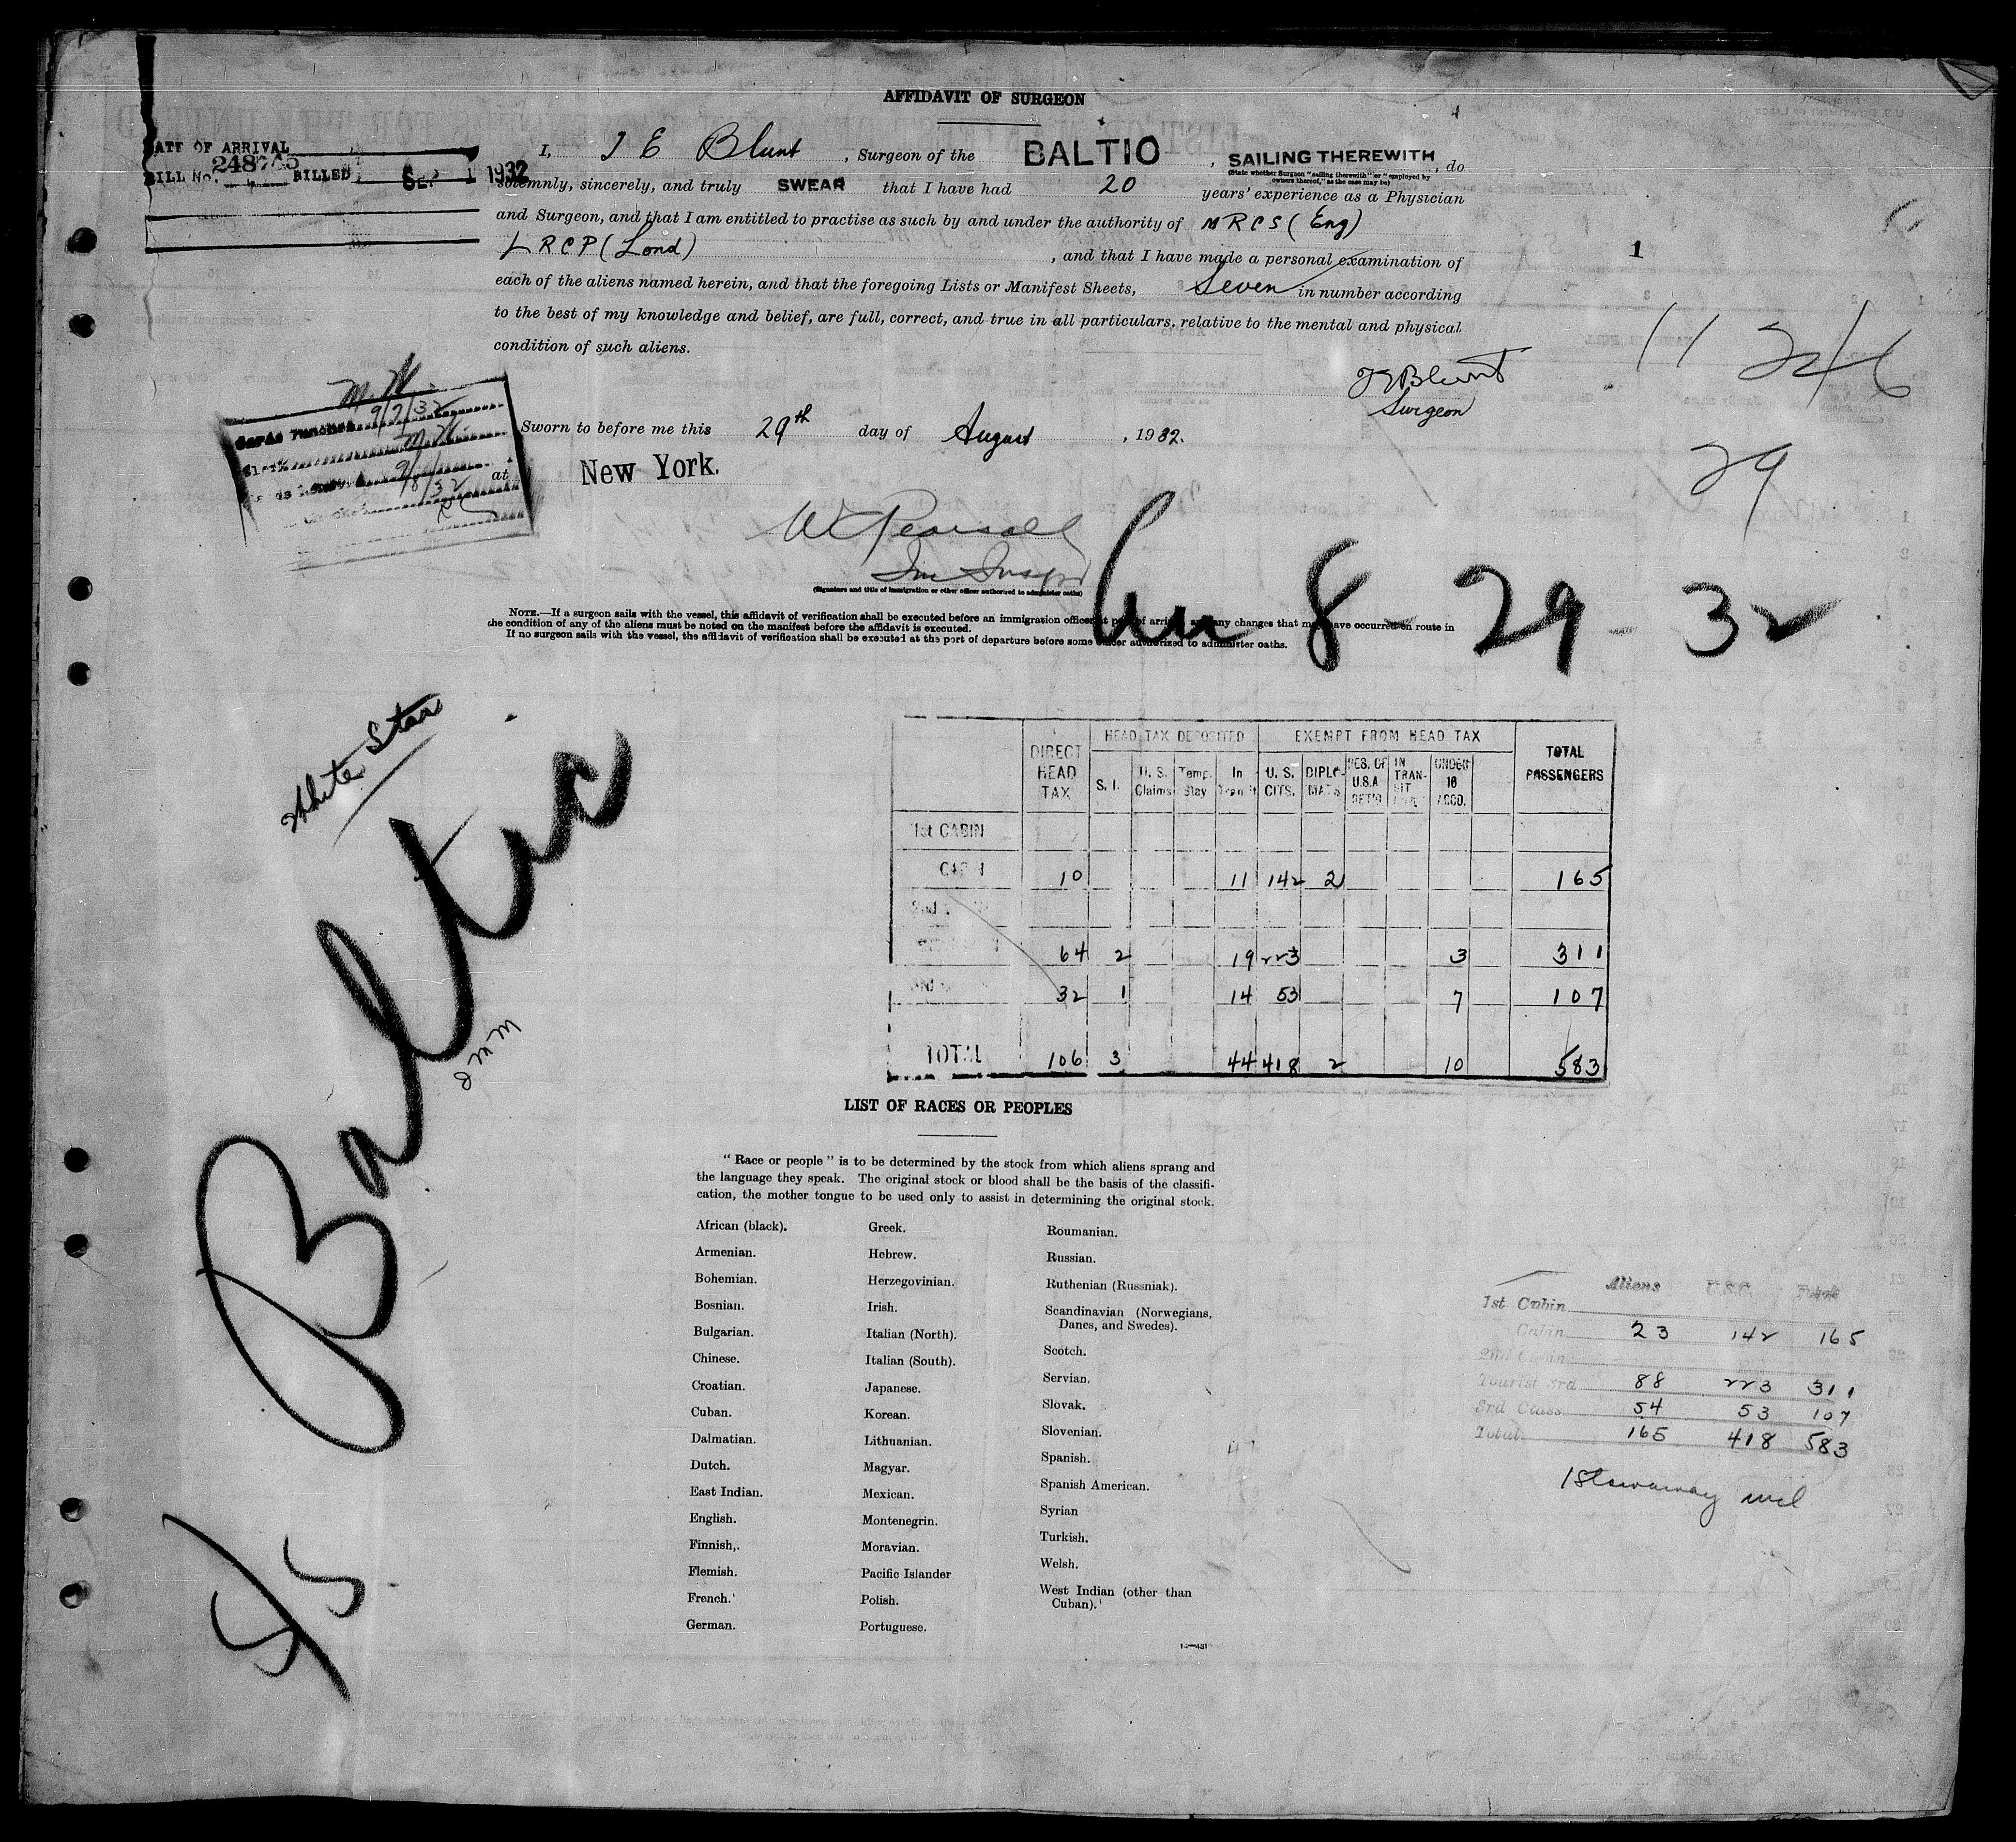 AFFIDAVIT OF SURGEON
DATE OF ARRIVAL
BILL No. BILLED SEP 1 1932
I, J E Blunt, Surgeon of the BALTIC, SAILING THEREWITH, do
(State whether Surgeon "sailing therewith" or "employed by
owners thereof," as the case may be)
solemnly, sincerely, and truly SWEAR that I have had 20 years' experience as a Physician
and Surgeon, and that I am entitled to practise as such by and under the authority of MRCS (Eng)
LRCP (Lond), and that I have made a personal examination of
each of the aliens named herein, and that the foregoing Lists or Manifest Sheets, Seven in number according
to the best of my knowledge and belief, are full, correct, and true in all particulars, relative to the mental and physical
condition of such aliens.
1
11 246
29
J E Blunt
Surgeon
M.H.
Cards Punched 9/7/32
Clerk M.H.
9/8/32
Sworn to before me this 29th day of August, 1932.
at New York.
W Pearsall
Imm Inspr
(Signature and title of immigration or other officer authorized to administer oaths)
8-29-32
NOTE.—If a surgeon sails with the vessel, this affidavit of verification shall be executed before an immigration officer at port of arrival, and any changes that may have occurred en route in
the condition of any of the aliens must be noted on the manifest before the affidavit is executed.
If no surgeon sails with the vessel, the affidavit of verification shall be executed at the port of departure before some officer authorized to administer oaths.
White Star
S/S Baltic
DIRECT HEAD TAX HEAD TAX DEPOSITED EXEMPT FROM HEAD TAX TOTAL PASSENGERS
S. I. U. S. Claims Temp. Stay In Transit U. S. CITS. DIPLOMATS RES. OF U.S.A. RET'G IN TRANSIT UNDER 16 ACCD.
1st CABIN
CABIN 10 11 142 2 165
2nd
64 2 19 223 3 311
3rd 32 1 14 53 7 107
TOTAL 106 3 44 418 2 10 583
LIST OF RACES OR PEOPLES
"Race or people" is to be determined by the stock from which aliens sprang and
the language they speak. The original stock or blood shall be the basis of the classifi-
cation, the mother tongue to be used only to assist in determining the original stock.
African (black).
Armenian.
Bohemian.
Bosnian.
Bulgarian.
Chinese.
Croatian.
Cuban.
Dalmatian.
Dutch.
East Indian.
English.
Finnish.
Flemish.
French.
German.
Greek.
Hebrew.
Herzegovinian.
Irish.
Italian (North).
Italian (South).
Japanese.
Korean.
Lithuanian.
Magyar.
Mexican.
Montenegrin.
Moravian.
Pacific Islander
Polish.
Portuguese.
Roumanian.
Russian.
Ruthenian (Russniak).
Scandinavian (Norwegians,
Danes, and Swedes).
Scotch.
Servian.
Slovak.
Slovenian.
Spanish.
Spanish American.
Syrian
Turkish.
Welsh.
West Indian (other than
Cuban).
Aliens U.S.C. Total
1st Cabin
Cabin 23 142 165
2nd Cabin
Tourist 3rd 88 223 311
3rd Class 54 53 107
Total 165 418 583
1 Stowaway incl